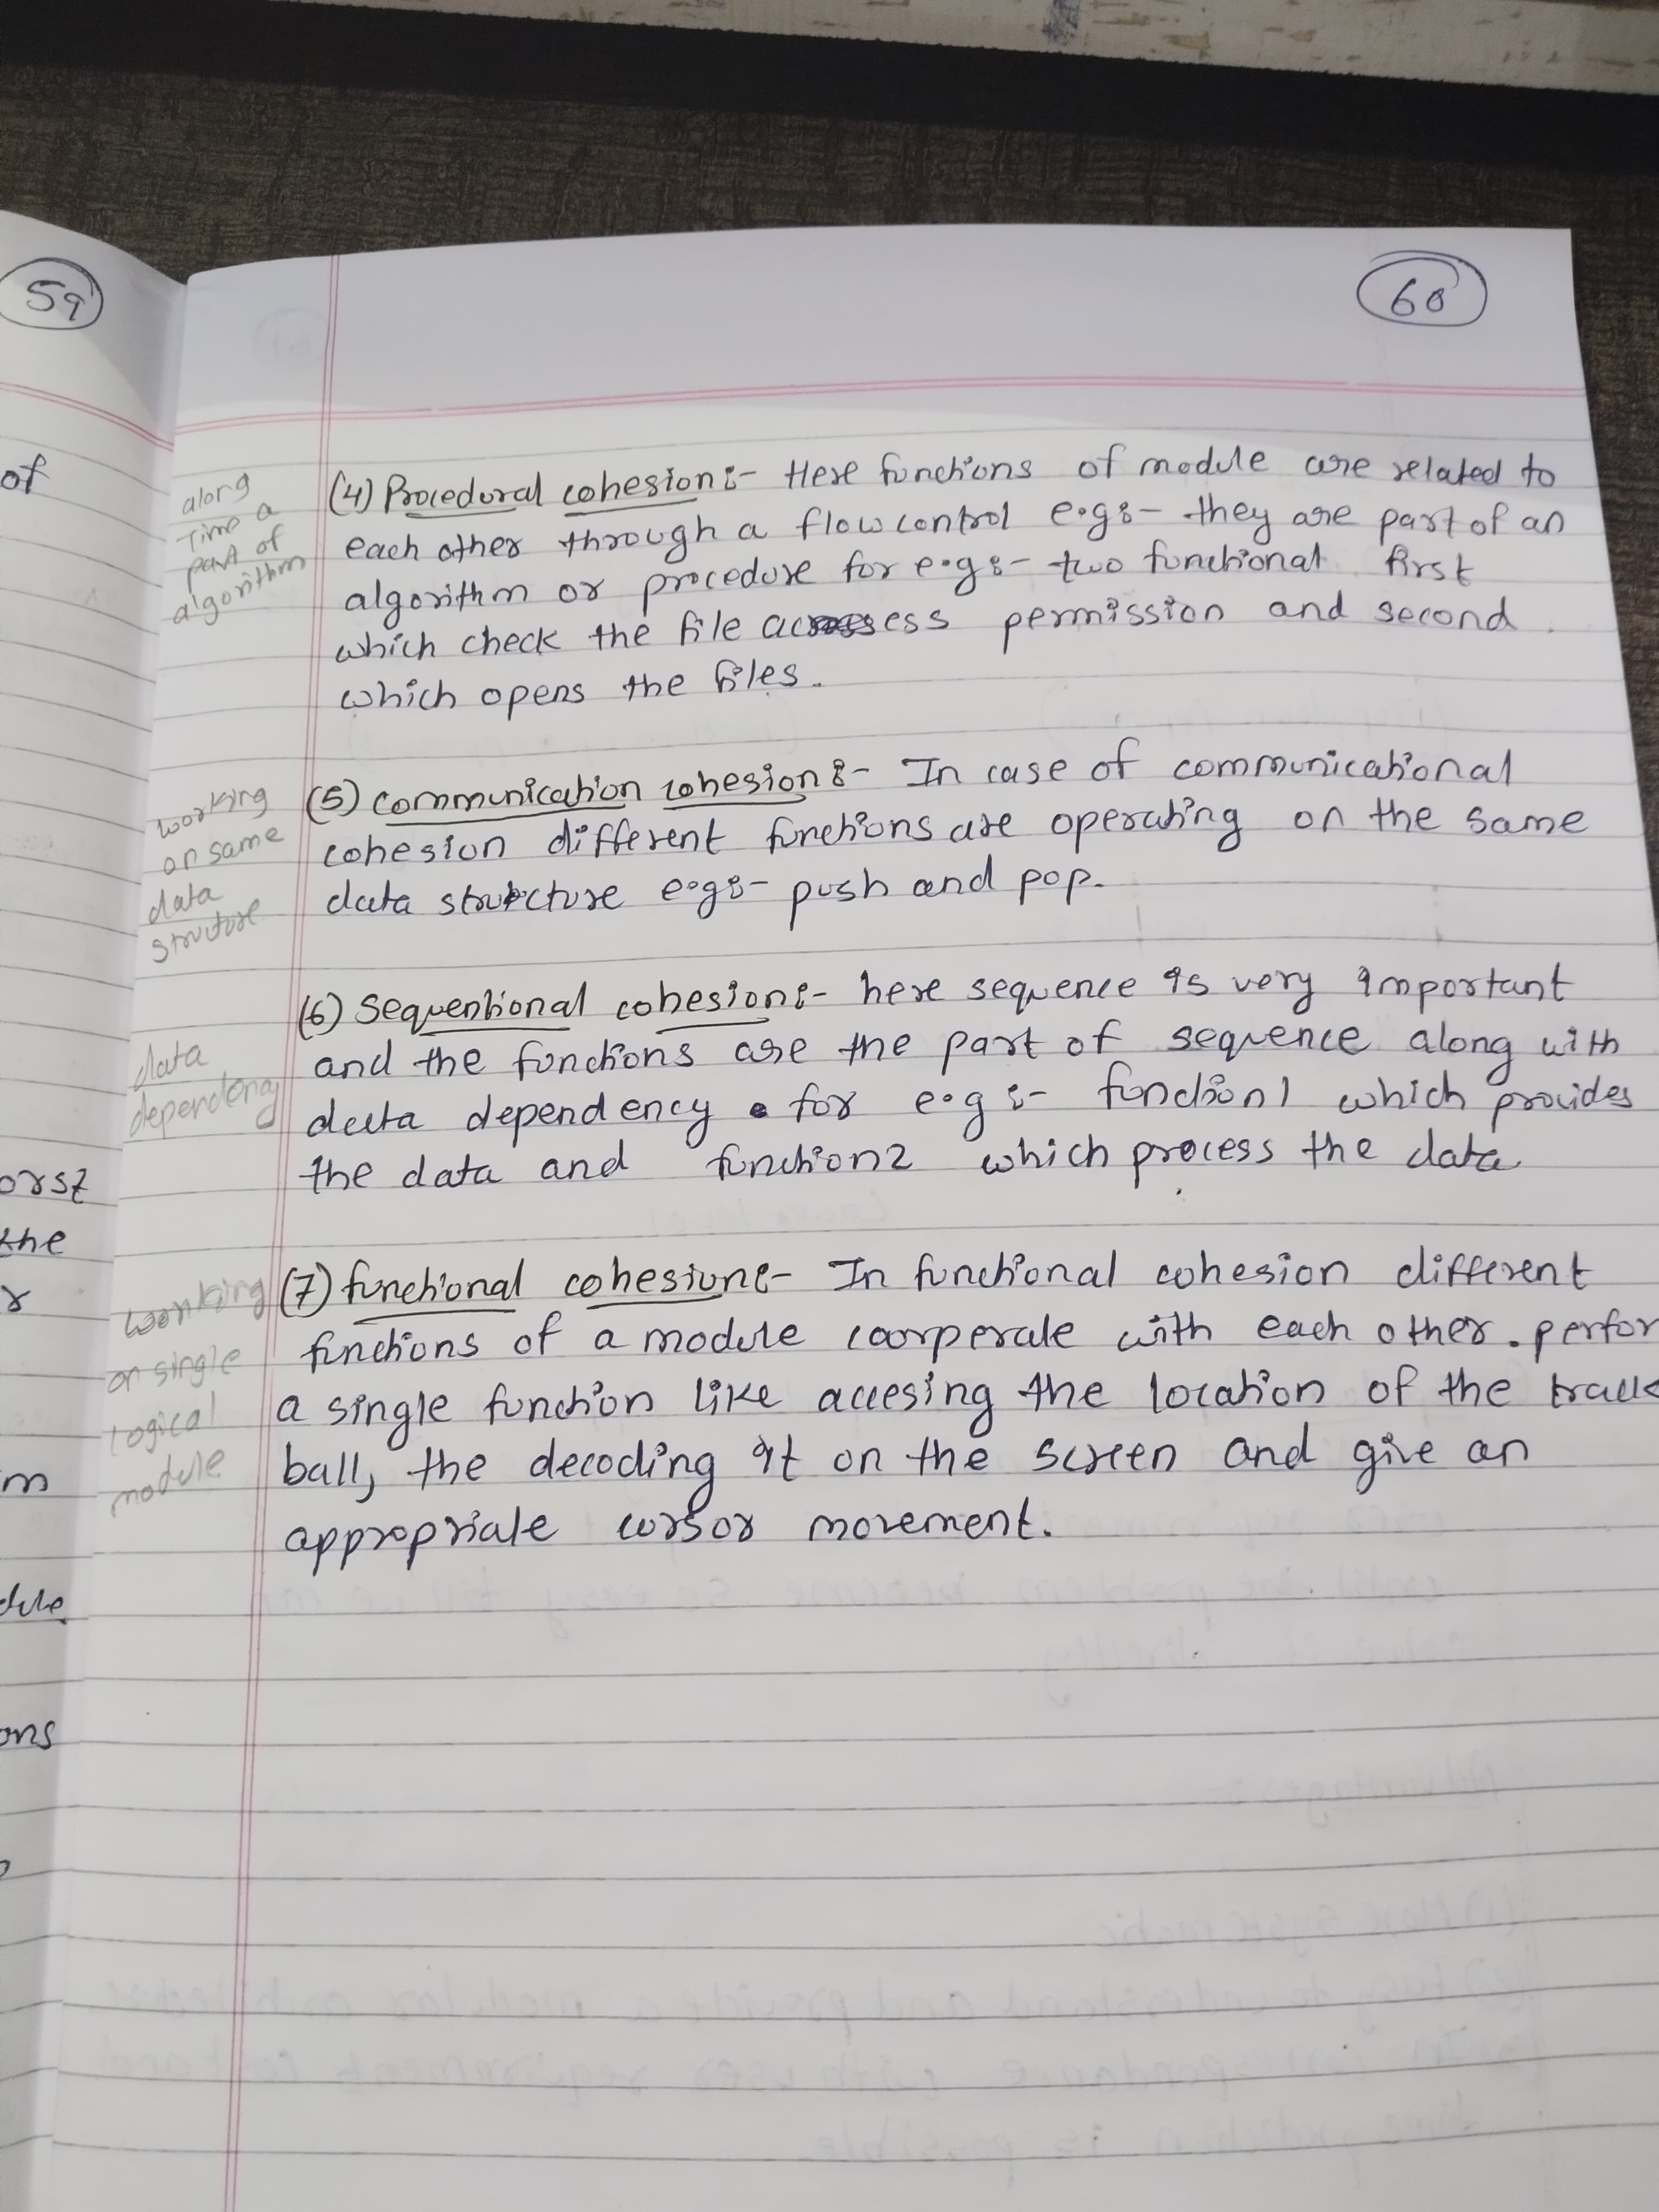 59
60
of
along
time a
part of
algorithm
(4) Procedural cohesion:- Here functions of module are related to
each other through a flow control e.g:- they are part of an
algorithm or procedure for e.g:- two functional first
which check the file acess permission and second
which opens the files.
working
on same
data
structure
(5) communication cohesion:- In case of communicational
cohesion different functions are operating on the same
data structure e.g:- push and pop.
data
dependency
(6) sequentional cohesion:- here sequence is very important
and the functions are the part of sequence along with
data dependency for e.g:- function1 which provides
the data and function2 which process the data
orst
the
r
working
on single
logical
module
(7) functional cohesion:- In functional cohesion different
functions of a module coorperate with each other. perfor
a single function like accesing the location of the track
ball, the decoding it on the screen and give an
appropriate cursor movement.
m
dule
ons